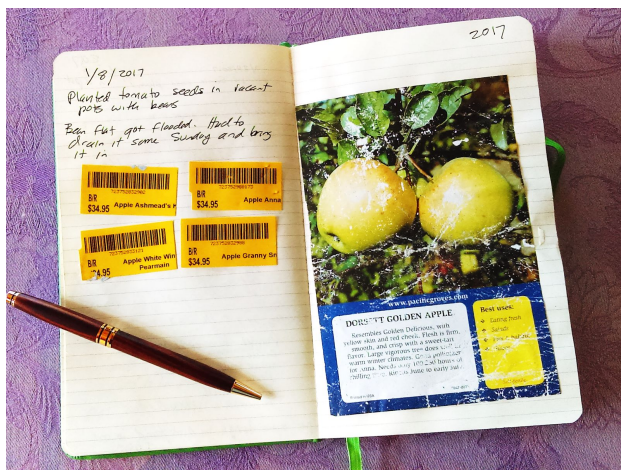 1/8/2017
Planted tomato seeds in vacant
pots with bears
Bean flat got flooded. Had to
drain it same Sunday and bring
it in
B/R
$34.95
Apple Ashmead's
B/R
$34.95
Apple Anna
B/R
$34.95
Apple White Win
Pearmain
B/R
$34.95
Apple Granny Sm
2017
www.pacificgroves.com
GOLDEN APPLE
Resembles Golden Delicious, with
yellow skin and red cheek. Flesh is firm,
smooth, and crisp with a sweet-tart
flavor. Large vigorous tree does well in
warm winter climates. Good pollenizer
for Anna. Needs only 100-250 hours of
June to early
Best uses:
Eating fresh
Salads